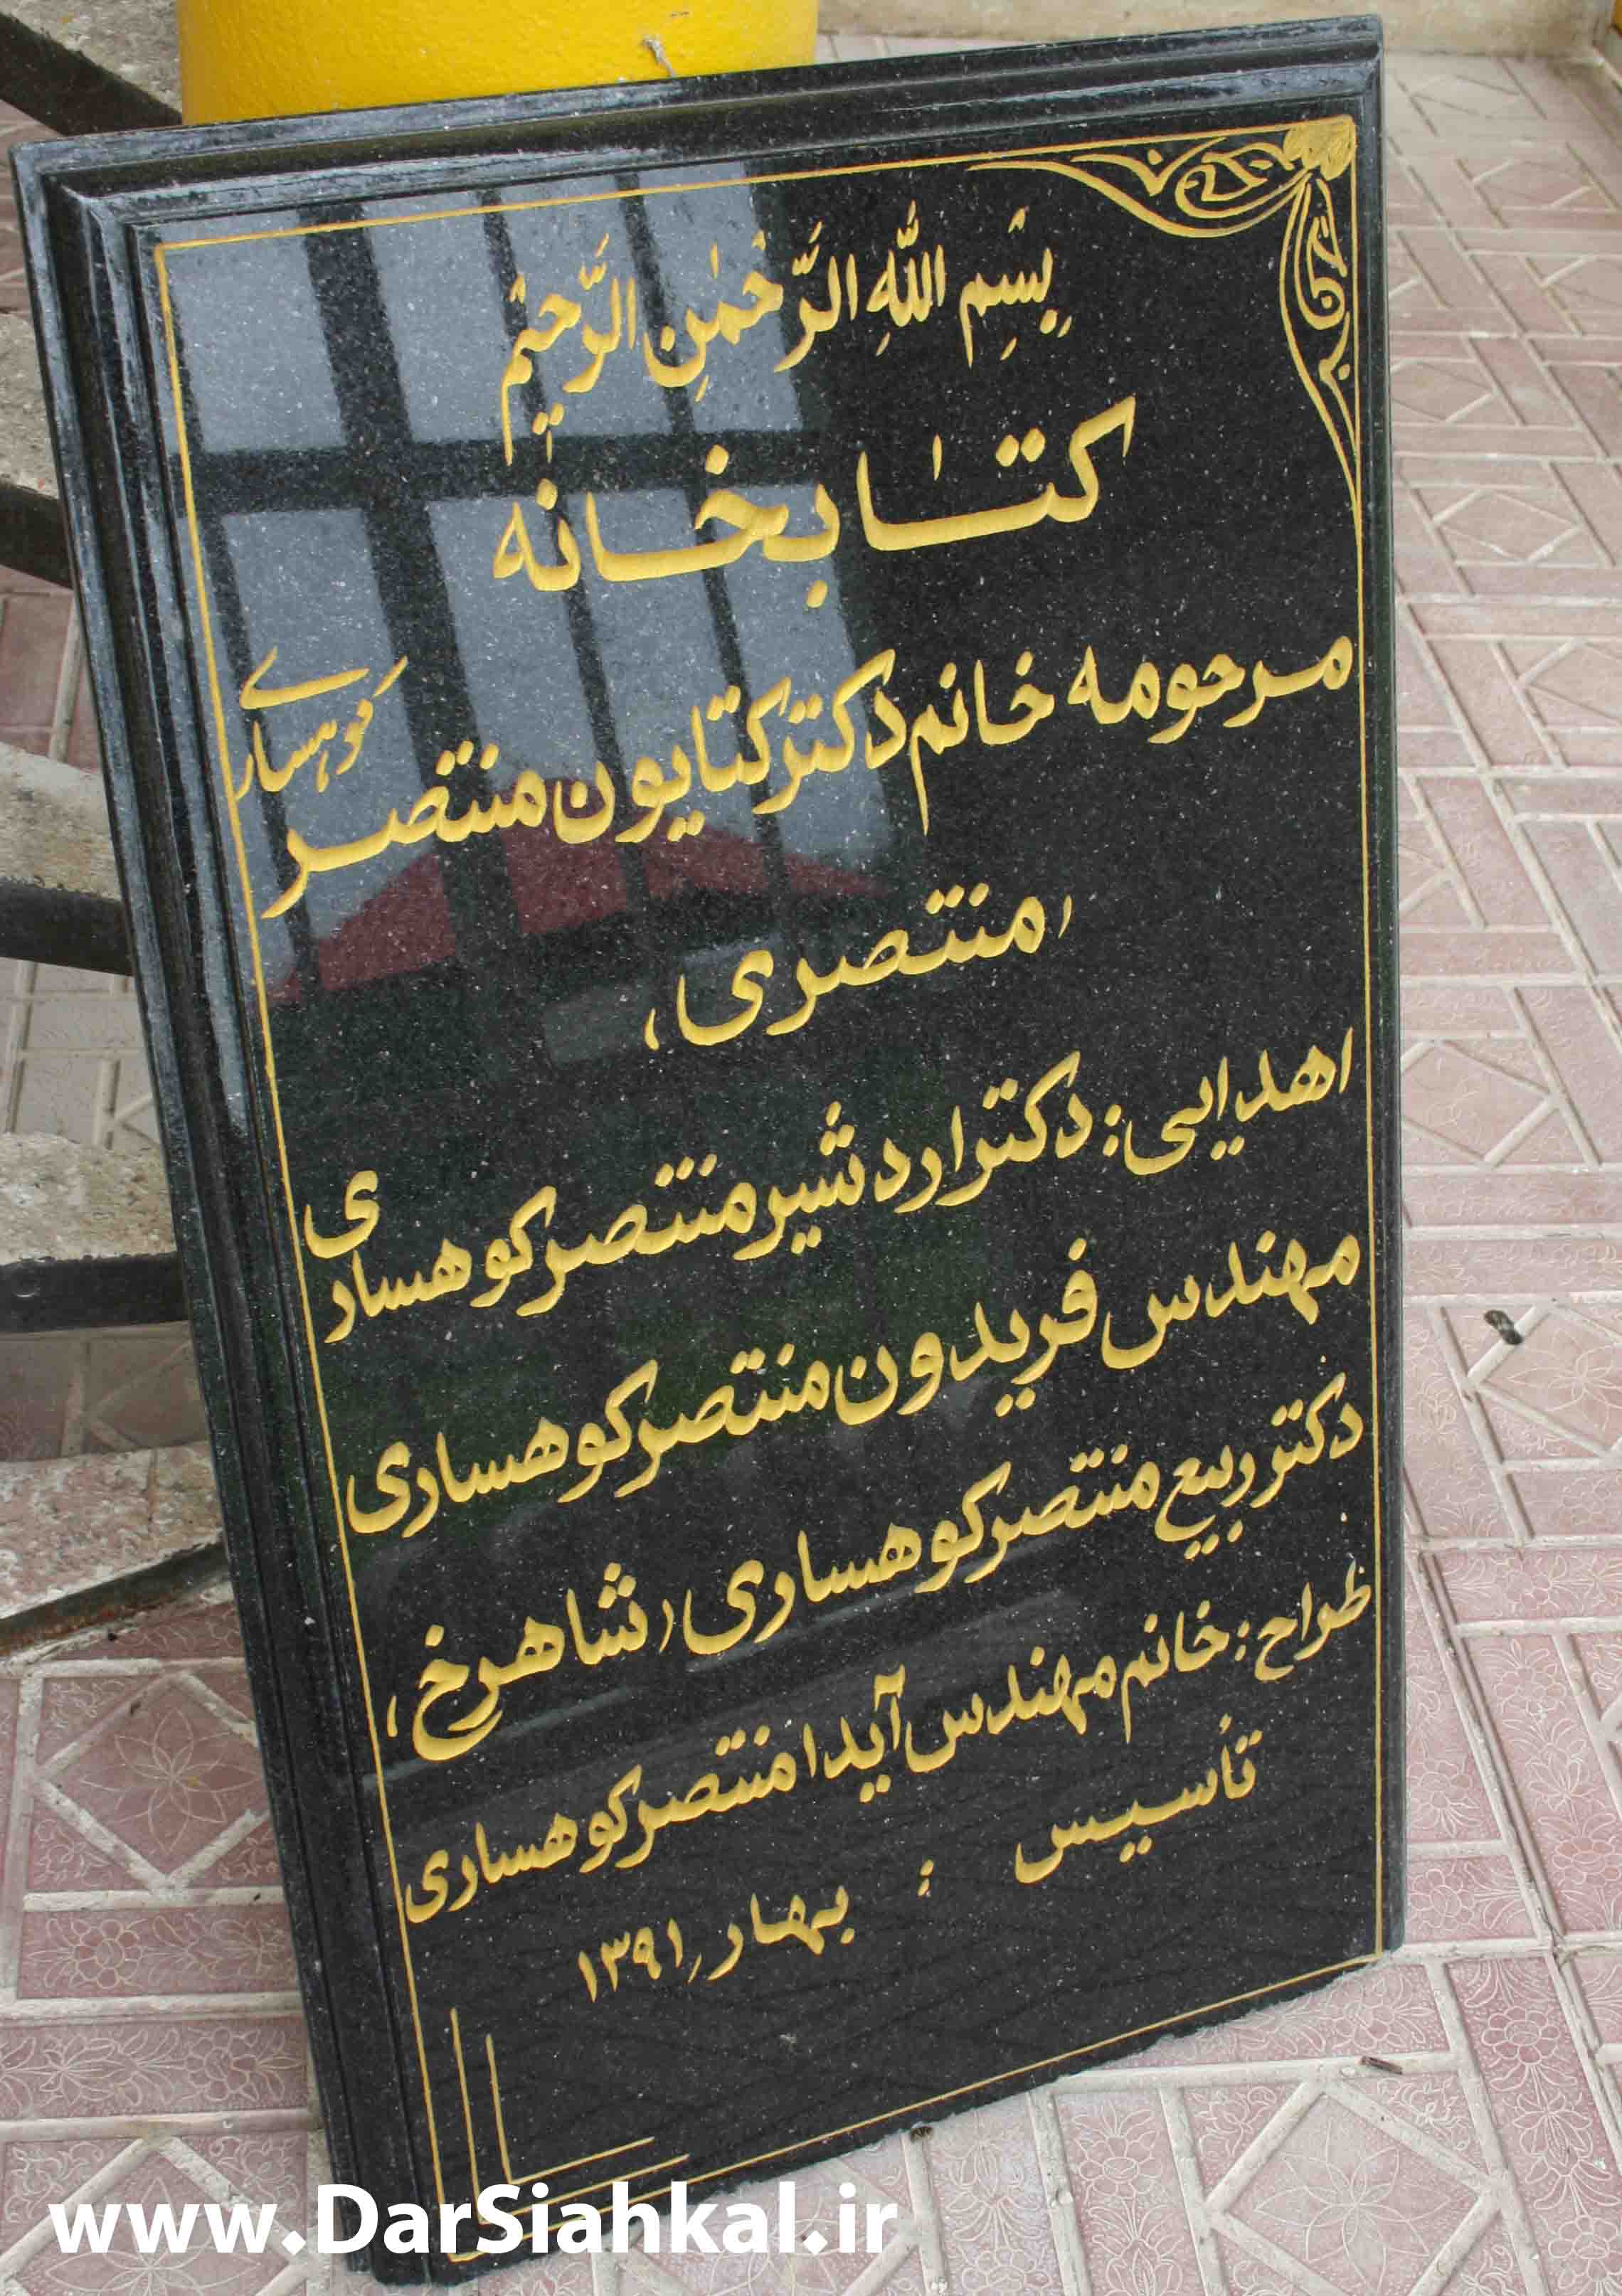 بِسْمِ اللهِ الرَّحْمٰنِ الرَّحیْم
کتابخانه
مرحومه خانم دکتر کتایون منتصر کوهساری
(منتصری)
اهدایی: دکتر اردشیر منتصر کوهساری
مهندس فریدون منتصر کوهساری
دکتر ربیع منتصر کوهساری (شاهرخ)
طراح: خانم مهندس آیدا منتصر کوهساری
تأسیس : بهار ۱۳۹۱
www.DarSiahkal.ir